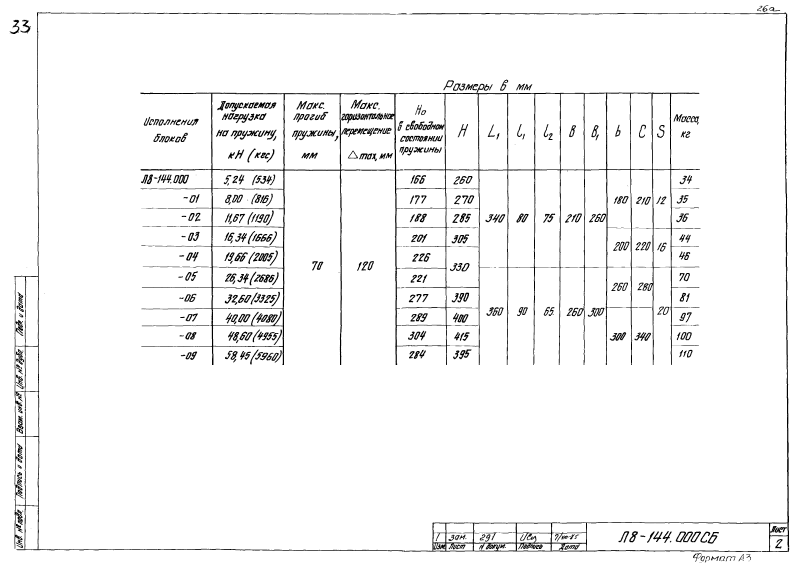 26а
33
Размеры в мм
Исполнения блоков | Допускаемая нагрузка на пружину, кН (кгс) | Макс. прогиб пружины, мм | Макс. горизонтальное перемещение Δmax, мм | Но в свободном состоянии пружины | H | L₁ | l₁ | l₂ | B | B₁ | b | C | S | Масса, кг
Л8-144.000 | 5,24 (534) | 70 | 120 | 166 | 260 | 340 | 80 | 75 | 210 | 260 | 180 | 210 | 12 | 34
-01 | 8,00 (816) | 177 | 270 | 35
-02 | 11,67 (1190) | 188 | 285 | 36
-03 | 16,34 (1666) | 201 | 305 | 200 | 220 | 16 | 44
-04 | 19,66 (2005) | 226 | 330 | 46
-05 | 26,34 (2686) | 221 | 360 | 90 | 65 | 260 | 300 | 260 | 280 | 20 | 70
-06 | 32,60 (3325) | 277 | 390 | 81
-07 | 40,00 (4080) | 289 | 400 | 300 | 340 | 97
-08 | 48,60 (4955) | 304 | 415 | 100
-09 | 58,45 (5960) | 284 | 395 | 110
Подп. и дата
Инв. № дубл.
Взам. инв. №
Подпись и дата
Инв. № подл.
1 зам. 291
Изм. Лист № докум. Подпись Дата
Л8-144.000СБ
Лист
2
Формат А3